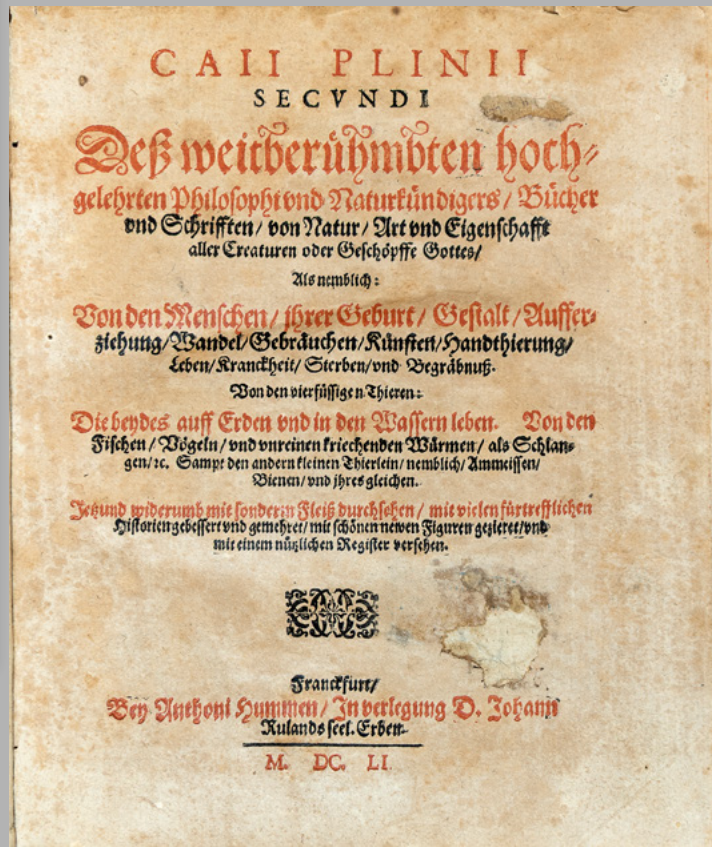 CAII PLINII
SECVNDI
Deß weitberühmbten hoch-
gelehrten Philosophi vnd Naturkündigers / Bücher
vnd Schrifften / von Natur / Art vnd Eigenschafft
aller Creaturen oder Geschöpffe Gottes /
Als nemblich:
Von den Menschen / jhrer Geburt / Gestalt / Auffer-
ziehung / Wandel / Gebräuchen / Künsten / Handthierung /
Leben / Kranckheit / Sterben / vnd Begräbnuß.
Von den vierfüssigen Thieren:
Die beydes auff Erden vnd in den Wassern leben. Von den
Fischen / Vögeln / vnd vnreinen kriechenden Würmen / als Schlan-
gen / ꝛc. Sampt den andern kleinen Thierlein / nemblich / Ammeissen /
Bienen / vnd jhres gleichen.
Jetzund widerumb mit sonderm Fleiß durchsehen / mit vielen fürtrefflichen
Historien gebessert vnd gemehret / mit schönen newen Figuren gezieret / vnd
mit einem nützlichen Register versehen.
Franckfurt /
Bey Anthoni Hummen / In verlegung D. Johann
Rulands seel. Erben.
M. DC. LI.